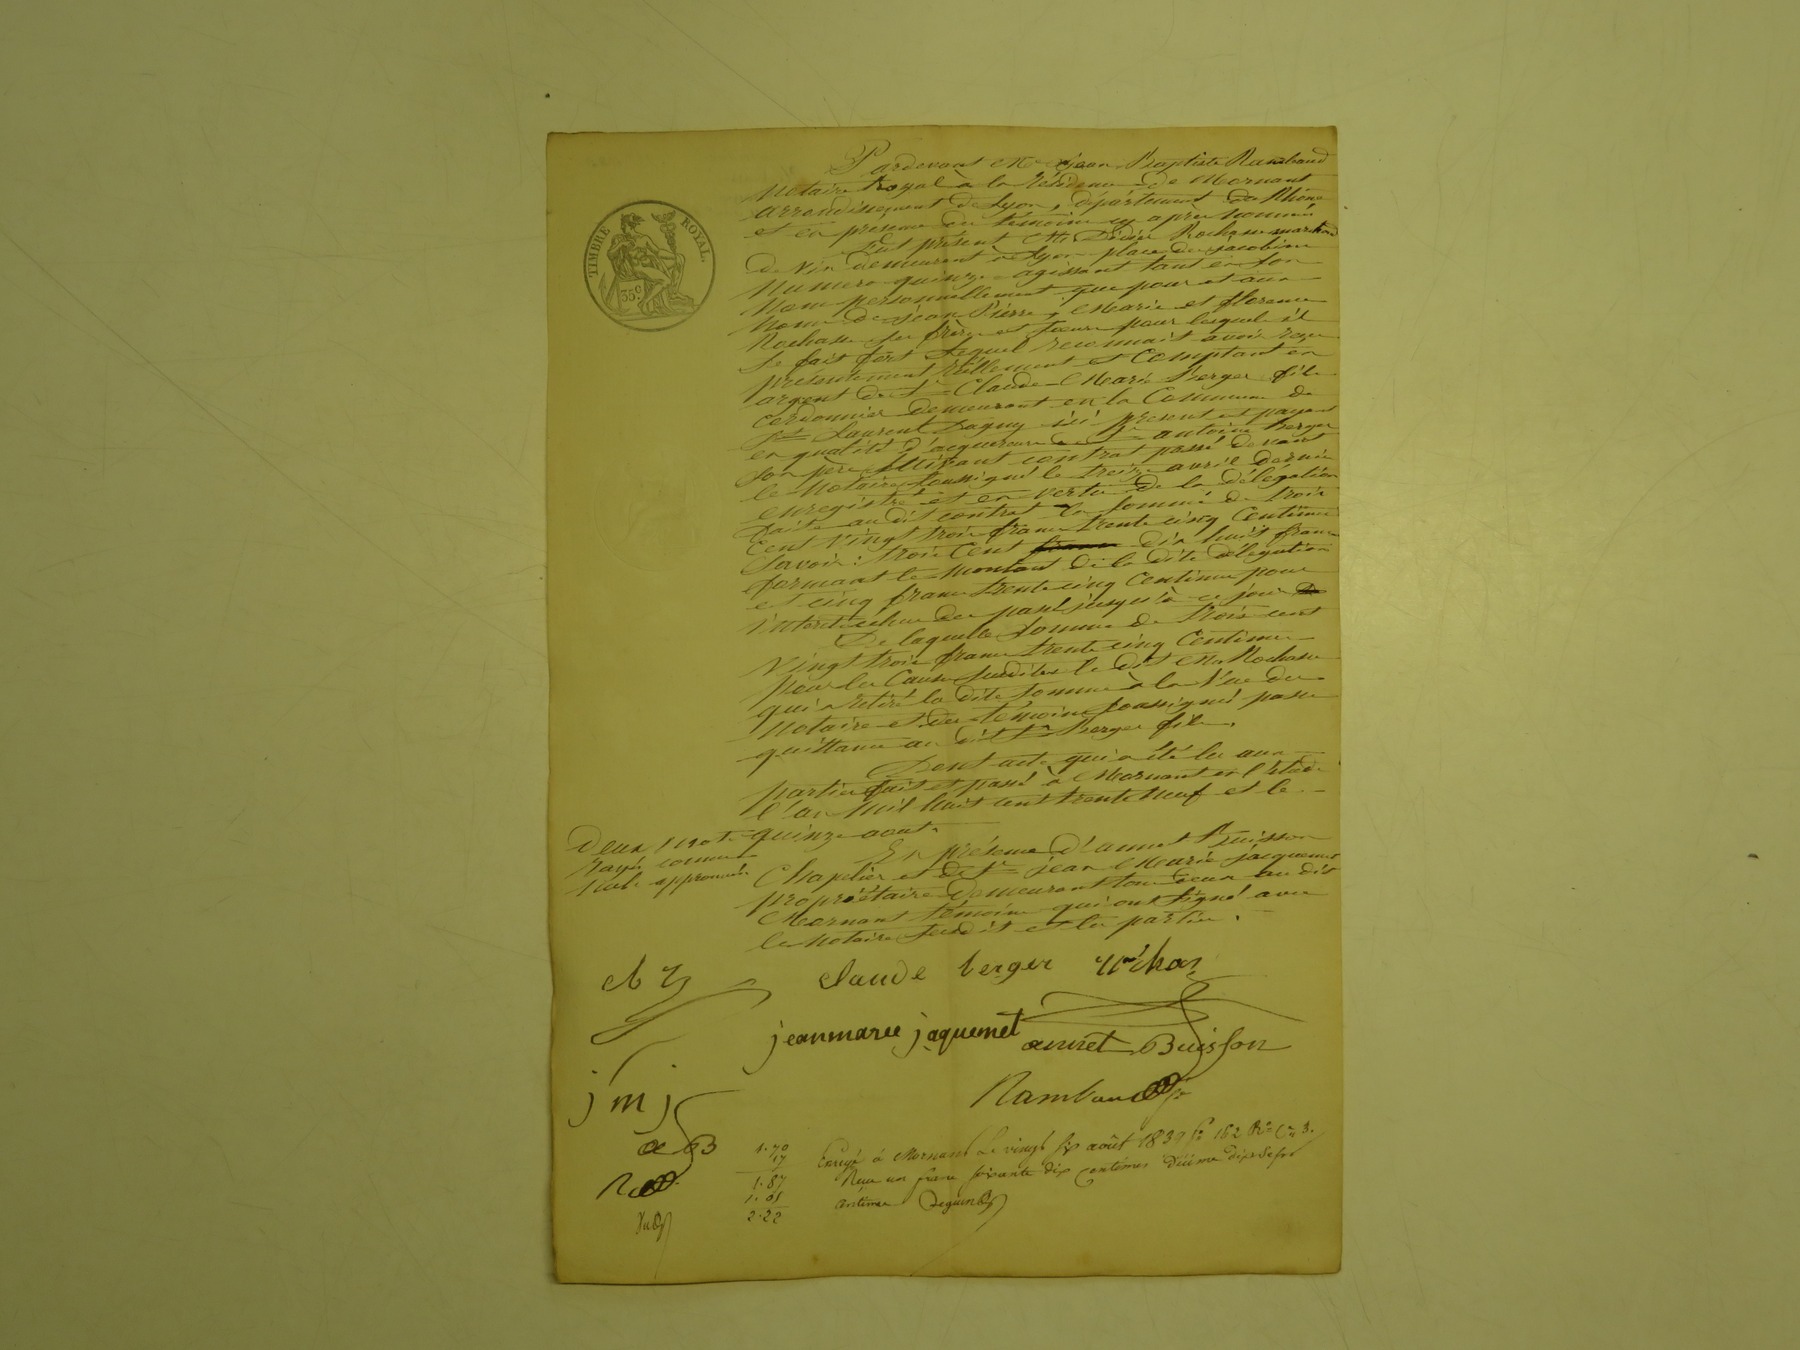 TIMBRE ROYAL.
35c
Pardevant Me Jean Baptiste Rambaud
Notaire royal à la résidence de Mornant
arrondissement de Lyon, département du Rhône
et en presence des témoins cy après nommés
Fut présent Mr Didier Rochas marchand
de vin demeurant à Lyon place des jacobins
Numero quinze agissant tant en son
Nom personnellement que pour et aux
Noms de Jean Pierre, Marie et florence
Rochas ses frère et soeurs pour lesquels il
se fait fort Lequel reconnait avoir reçu
présentement réellement et comptant en
argent du Sr Claude Marie Berger fils
cordonnier demeurant en la Commune de
St Laurent Dagny ici présent et payant
en qualité d'acquereur de Sr antoine Berger
son père suivant contrat passé devant
le Notaire soussigné le treize avril dernier
enregistré et en vertu de la délégation
faite au dit contrat la somme de trois
Cent vingt trois francs trente cinq Centimes
Savoir: trois Cent dix huit francs
formant le montant de la dite délégation
et cinq francs trente cinq Centimes pour
interêts échus du passé jusqu'à ce jour
De laquelle somme de trois cent
Vingt trois francs trente cinq Centimes
pour les Causes susdites le dit Mr Rochas
qui a retiré la dite somme à la Vue des
Notaire et des témoins soussignés passe
quittance au dit Sr Berger fils.
Dont acte qui a été lu aux
parties fait et passé à Mornant en l'étude
l'an Mil huit cent trente Neuf et le
quinze aout.
Deux mots
rayés comme
nuls approuvés
En présence d'annet Buisson
Chapelier et de Sr jean Marie jacquemet
propriétaire demeurant tous deux au dit
Mornant témoins qui ont signé avec
le Notaire susdit et les parties.
claude berger
jeanmarie jaquemet
annet Buisson
Rambaud
j m j
a B
1.70
17
1.87
2.22
Enrégé à Mornant Le vingt six août 1839 fo 182 Ro Ce 3.
Reçu un franc soixante dix centimes décime dix sept
centimes